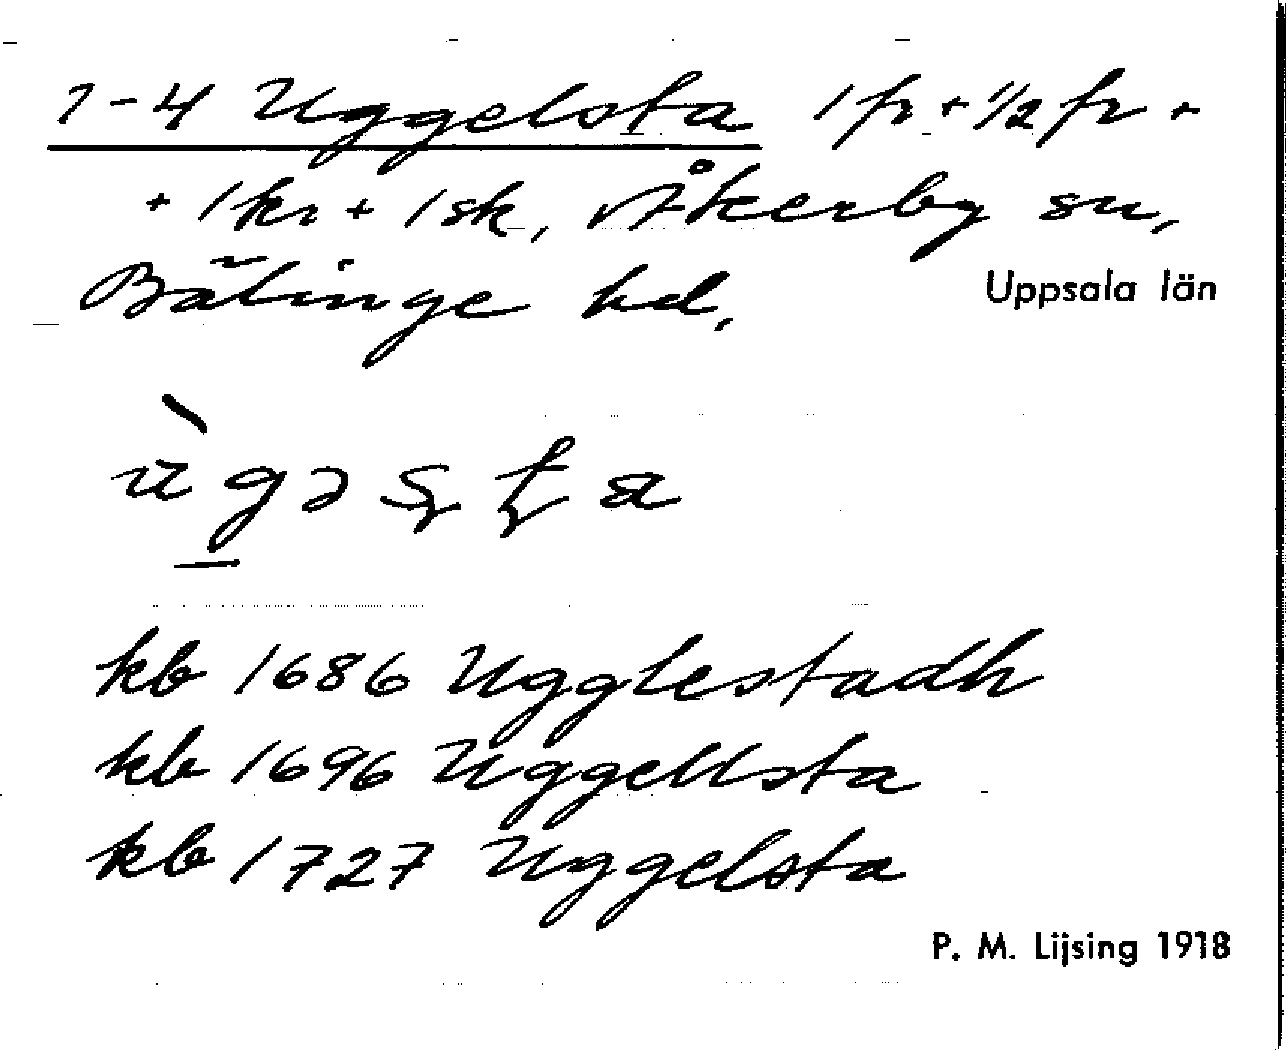 1-4 Uggelsta 1 fr + 1/2 fr +
+ 1 kr + 1 sk, Åkerby sn,
Bälinge hd.
Uppsala län
kb 1686 Ugglestadh
kb 1696 Uggellsta
kb 1727 Uggelsta
P. M. Lijsing 1918